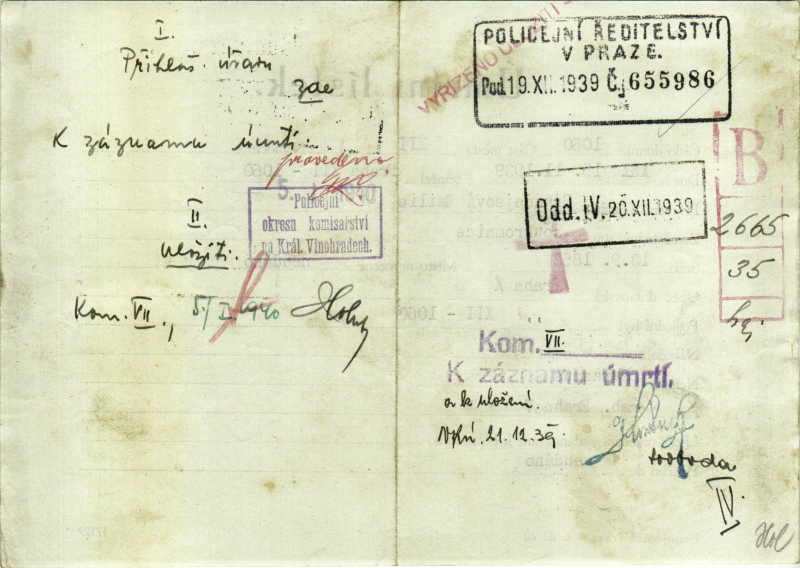 I.
Přihláš. úřadu
zde
K záznamu úmrtí.
provedeno
5. 1940
Policejní
okresní komisařství
na Král. Vinohradech.
II.
uložiti.
Kom. VII., 5/I 1940
VYŘÍZENO
POLICEJNÍ ŘEDITELSTVÍ
V PRAZE.
Pod. 19. XII. 1939 Č.j. 655986
B
2665
35
Odd. IV. 20. XII. 1939
Kom. VII.
K záznamu úmrtí.
a k uložení.
21.12.39.
Svoboda
IV.